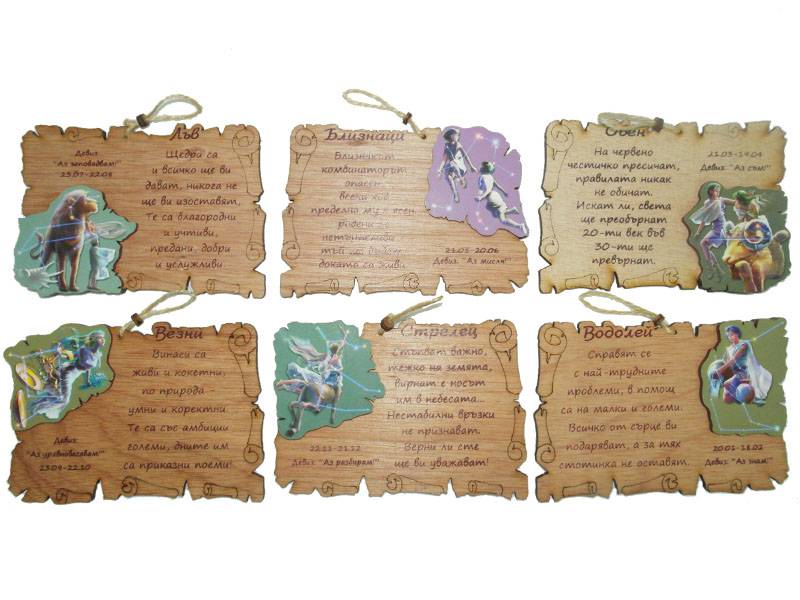 Лъв
Девиз:
"Аз заповядвам!"
23.07-22.08
Щедри са
и всичко ще ви
дават, никога не
ще ви изоставят,
Те са благородни
и учтиви,
предани, добри
и услужливи
Близнаци
Близнакът
комбинаторит
опасен.
Всеки ход
пределно му е ясен.
родени са
непъпнестиви
тъй ще бъдат
докато са живи.
21.05-20.06
Девиз: "Аз мисля!"
Овен
На червено
честичко пресичат,
правилата никак
не обичат.
Искат ли, света
ще преобърнат
20-ти век във
30-ти ще
превърнат.
21.03-19.04
Девиз: "Аз съм!"
Везни
Винаги са
живи и кокетни,
по природа -
умни и коректни.
Те са със амбиции
големи, дните им
са приказни поеми!
Девиз:
"Аз уравновесявам!"
23.09-22.10
Стрелец
Стъпват важно,
тежко на земята,
вирнат е носът
им в небесата..
Нестабилни връзки
не признават.
Верни ли сте
ще ви уважават!
22.11-21.12
Девиз: "Аз разбирам!"
Водолей
Справят се
с най-трудните
проблеми, в помощ
са на малки и големи.
Всичко от сърце ви
подаряват, а за тях
стотинка не оставят.
20.01-18.02
Девиз: "Аз знам!"